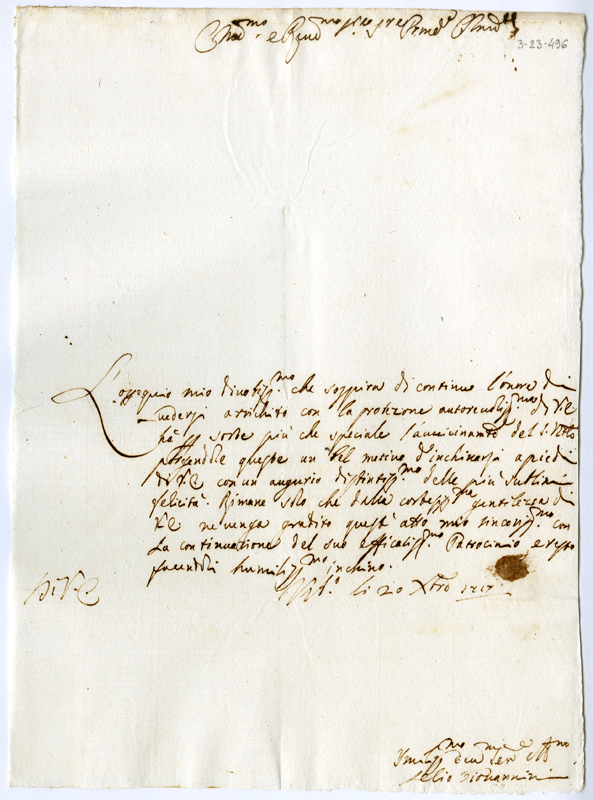 3-23-496
L'ossequio mio divotiss.mo che sospira di continuo l'onore di
vedersi arrichito con la protezione autorevoliss.ma di V.E.
hà p sorte più che speciale l'avvicinam.to del S. Natale
porgendole queste un bel motivo d'inchinarsi a piedi
di V.E. con un augurio distintiss.mo delle più sublimi
felicità. Rimane solo che dalla cortesiss.ma gentilezza di
V.E. ne venga gradito quest'atto mio sinceriss.mo con
la continuazione del suo efficaciss.mo Patrocinio e resto
facendoli humiliss.mo inchino.
Di V.E.
li 20 Xbre 1717
Umiliss.mo ser.
Lelio Giovannini